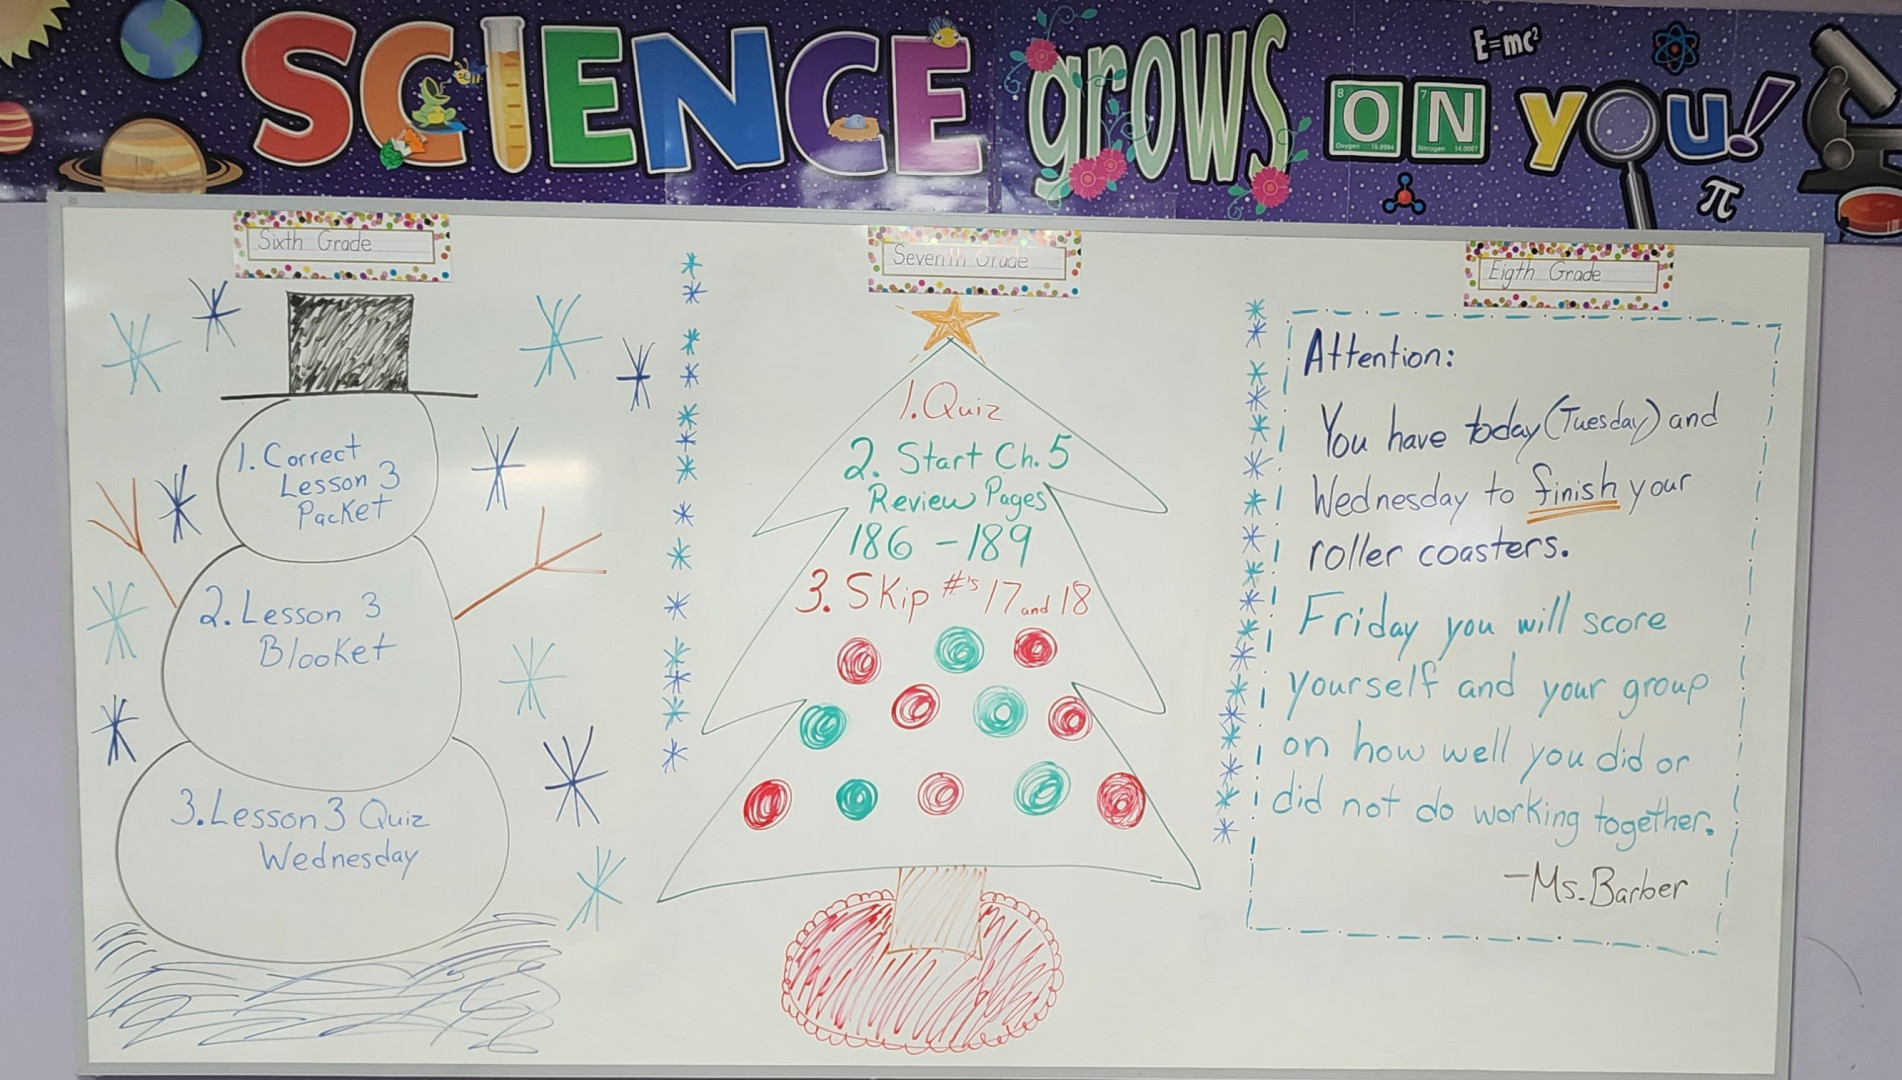 SCIENCE grows ON yOu!
E=mc²
8
7
Oxygen 15.9994
Nitrogen 14.0067
π
Sixth Grade
1. Correct
Lesson 3
Packet
2. Lesson 3
Blooket
3. Lesson 3 Quiz
Wednesday
Seventh Grade
1. Quiz
2. Start Ch. 5
Review Pages
186 - 189
3. Skip #'s 17 and 18
Eigth Grade
Attention:
You have today (Tuesday) and
Wednesday to finish your
roller coasters.
Friday you will score
yourself and your group
on how well you did or
did not do working together.
-Ms. Barber